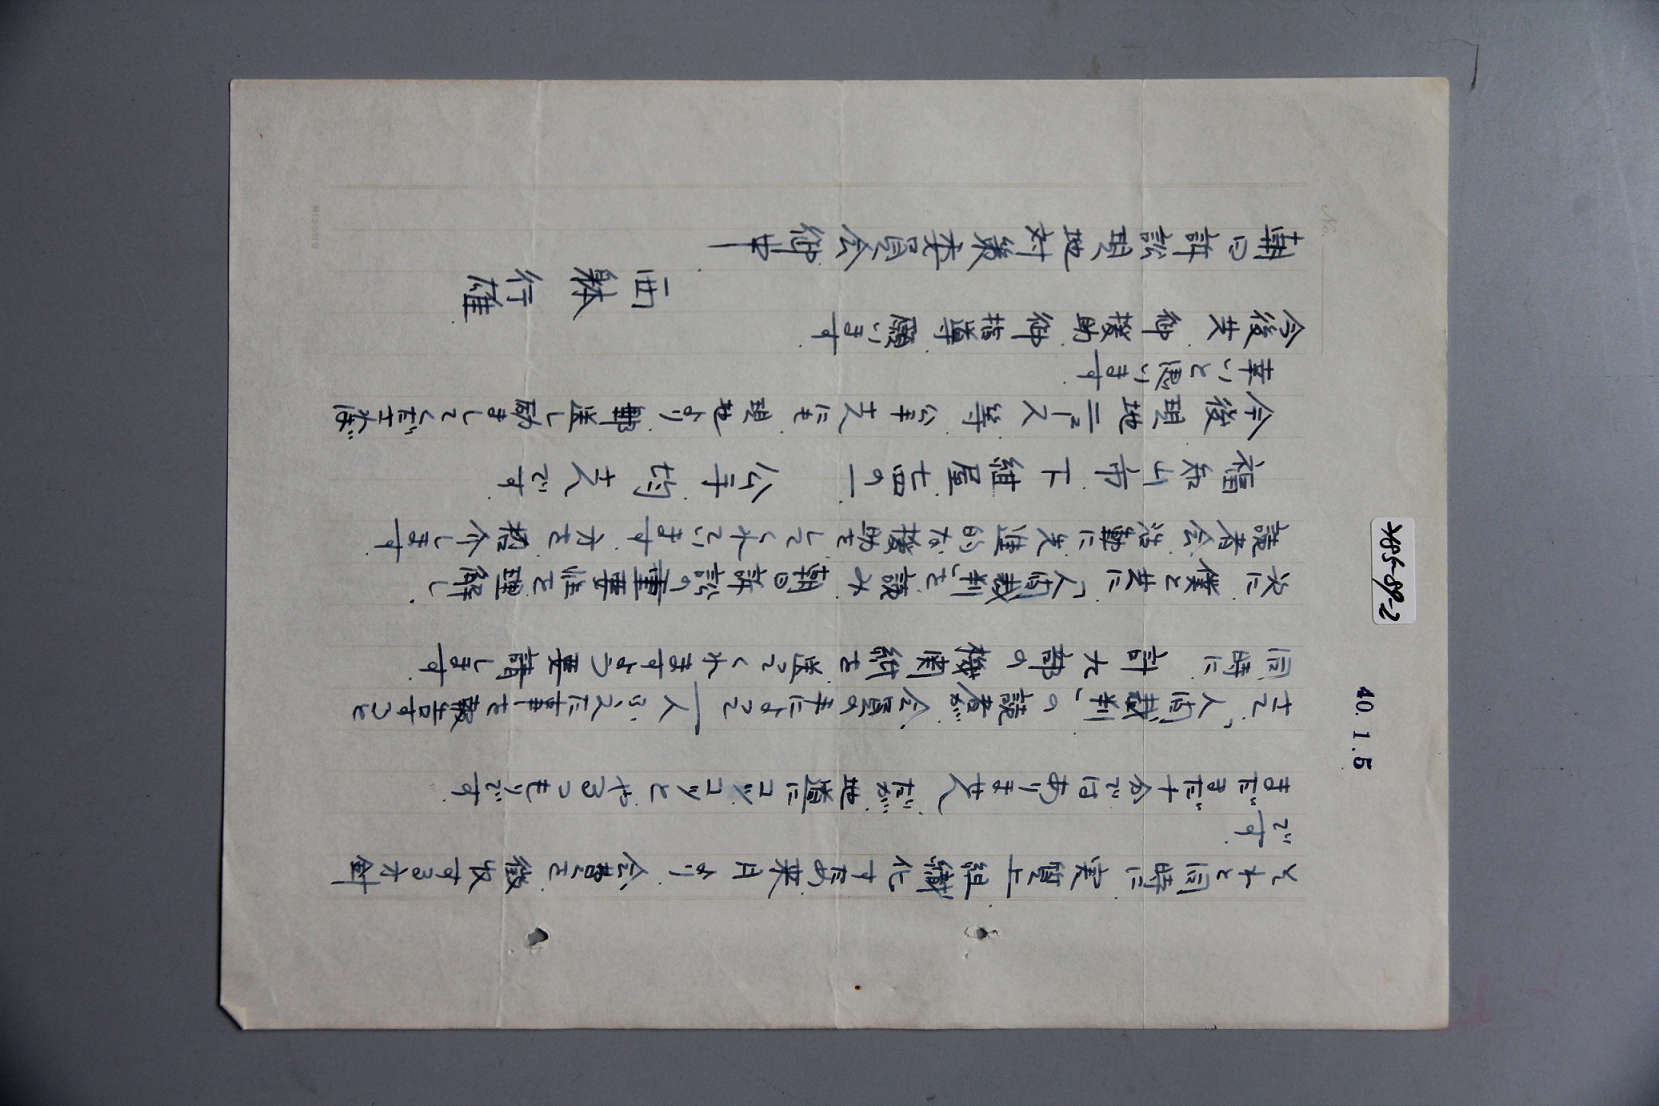 それと同時に実質上組織化す為来月より会費を徴収する方針
です
まだまだ十分ではありませんだが地道にコツコツとやるつもりです
さて「人間裁判」の読者が会員の手によって一人ふえた事を報告すると
同時に計九部の機関紙を送ってくれますよう要請します
次に僕と共に「人間裁判」を読み朝日訴訟の重要性を理解し
読者会活動に先進的な援助をしてくれています方を紹介します
福知山市下紺屋七四の一 公手均 です
今後現地ニュース等公手 にも現地より郵送し励ましてくださえば
幸いと思います
今後共御援助御指導願います
西躰行雄
朝日訴訟現地対策委員会御中
40. 1. 5